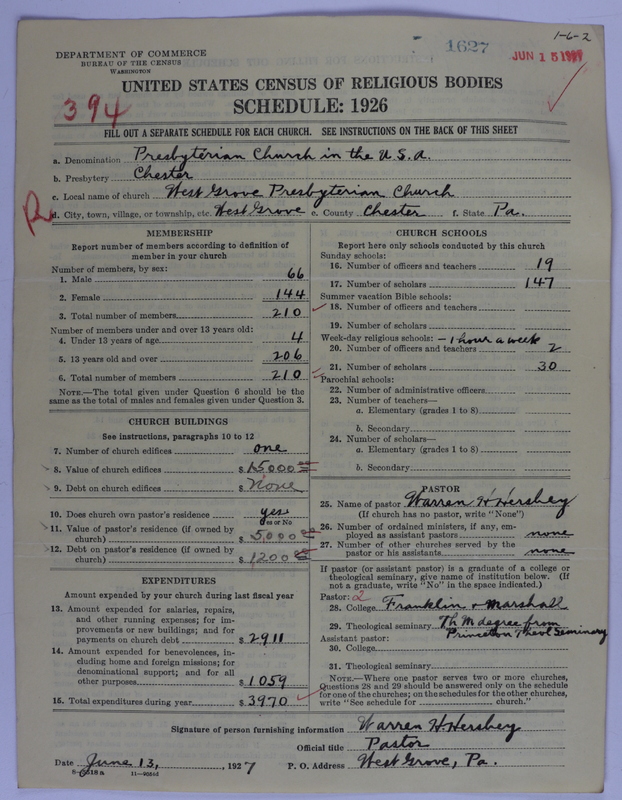 1-6-2
1627
JUN 15 1927
DEPARTMENT OF COMMERCE
BUREAU OF THE CENSUS
WASHINGTON
UNITED STATES CENSUS OF RELIGIOUS BODIES
SCHEDULE: 1926
394
FILL OUT A SEPARATE SCHEDULE FOR EACH CHURCH. SEE INSTRUCTIONS ON THE BACK OF THIS SHEET
a. Denomination Presbyterian Church in the U.S.A.
b. Presbytery Chester
c. Local name of church West Grove Presbyterian Church
d. City, town, village, or township, etc. West Grove e. County Chester f. State Pa.
MEMBERSHIP
Report number of members according to definition of
member in your church
Number of members, by sex:
1. Male 66
2. Female 144
3. Total number of members 210
Number of members under and over 13 years old:
4. Under 13 years of age 4
5. 13 years old and over 206
6. Total number of members 210
NOTE.—The total given under Question 6 should be
same as the total of males and females given under Question 3.
CHURCH BUILDINGS
See instructions, paragraphs 10 to 12
7. Number of church edifices one
8. Value of church edifices $ 15000 00
9. Debt on church edifices $ None
10. Does church own pastor's residence yes
Yes or No
11. Value of pastor's residence (if owned by
church) $ 5000 00
12. Debt on pastor's residence (if owned by
church) $ 1200 00
EXPENDITURES
Amount expended by your church during last fiscal year
13. Amount expended for salaries, repairs,
and other running expenses; for im-
provements or new buildings; and for
payments on church debt $ 2911
14. Amount expended for benevolences, in-
cluding home and foreign missions; for
denominational support; and for all
other purposes $ 1059
15. Total expenditures during year $ 3970
CHURCH SCHOOLS
Report here only schools conducted by this church
Sunday schools:
16. Number of officers and teachers 19
17. Number of scholars 147
Summer vacation Bible schools:
18. Number of officers and teachers
19. Number of scholars
Week-day religious schools: - 1 hour a week
20. Number of officers and teachers 2
21. Number of scholars 30
Parochial schools:
22. Number of administrative officers
23. Number of teachers—
a. Elementary (grades 1 to 8)
b. Secondary
24. Number of scholars—
a. Elementary (grades 1 to 8)
b. Secondary
PASTOR
25. Name of pastor Warren H Hershey
(If church has no pastor, write "None")
26. Number of ordained ministers, if any, em-
ployed as assistant pastors none
27. Number of other churches served by the
pastor or his assistants none
If pastor (or assistant pastor) is a graduate of a college or
theological seminary, give name of institution below. (If
not a graduate, write "No" in the space indicated.)
Pastor: 2
28. College Franklin + Marshall
29. Theological seminary Th M degree from
Princeton Theol Seminary
Assistant pastor:
30. College
31. Theological seminary
NOTE.—Where one pastor serves two or more churches,
Questions 28 and 29 should be answered only on the schedule
for one of the churches; on the schedules for the other churches,
write "See schedule for church."
Signature of person furnishing information Warren H. Hershey
Official title Pastor
Date June 13, 1927 P. O. Address West Grove, Pa.